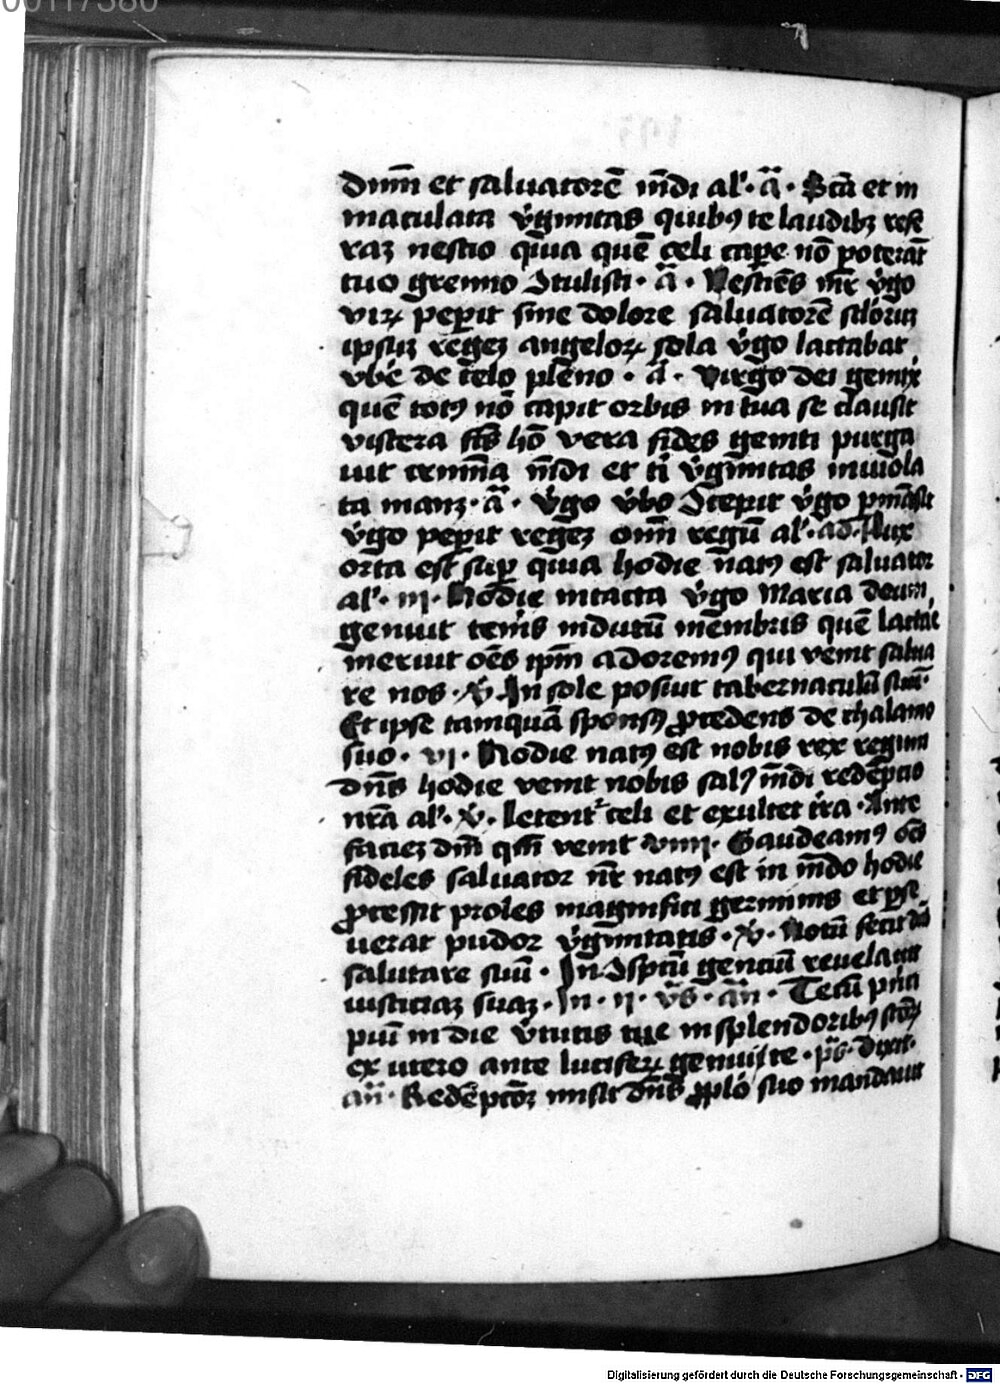 00117380
dnm̄ et saluatorē m̄di al'· ā · Scā et in
maculata v̾ginitas quibꝯ te laudibꝫ refe
raꝫ nescio qͥa quē celi capē nō poterāt
tuo gremio ɔtulisti · ā · Nesciēs mr̄ v̾go
virꝝ peꝑit sine dolore saluatorē sc̄loruꝫ
ipsuꝫ regeꝫ angeloꝝ sola v̾go lactabat
vbē de celo pleno · ā · Virgo dei genitx̄
quē totꝯ nō capit orbis in tua se clausit
viscera fc̄s hō vera fides geniti purga
uit crimīa m̄di et ti v̾gīnitas inuiola
ta manꝫ · ā · v̾go v̾bo ɔcepit v̾go ꝑmāsit
v̾go peꝑit regeꝫ om̄ regū al'· ad · Lux
orta est suꝑ qͥa hodie natꝯ est saluator
al'· iii · Hodie intacta v̾go Maria deum
genuit teneris indutū mēmbris quē lactare
meruit oēs ip̄m adoremꝯ qui venit salua
re nos · ꝟ · In sole posiut tabernaculū suū·
Et ipse tamquā sponsꝯ ꝓcedens de thalamo
suo · vi · Hodie natꝯ est nobis rex regum
dn̄s hodie venit nobis salꝯ m̄di redēptio
nr̄a al'· ꝟ · Letentᷣ celi et exultet t̾ra · Ante
facieꝫ dn̄i qm̄ venit · viiii · Gaudeamꝯ oēs
fideles saluator nr̄ natꝯ est in m̄do hodie
ꝓcessit proles magnifici germinis et ꝑse
uerat pudor v̾ginitatis · ꝟ · Notū fecit dn̄s
salutare suū · In ɔspectū gencium reuelauit
iusticiaꝫ suaꝫ · In · ii · vs̄ · an̄ · Tecū pn̄ci
piū in die v̾tutis tue in splendoribꝯ scōꝝ
ex utero ante luciferꝝ genui te · ps̄ · Dixit·
an̄ · Redēptōꝫ misit dn̄s ꝓplō suo mandauit
Digitalisierung gefördert durch die Deutsche Forschungsgemeinschaft - DFG